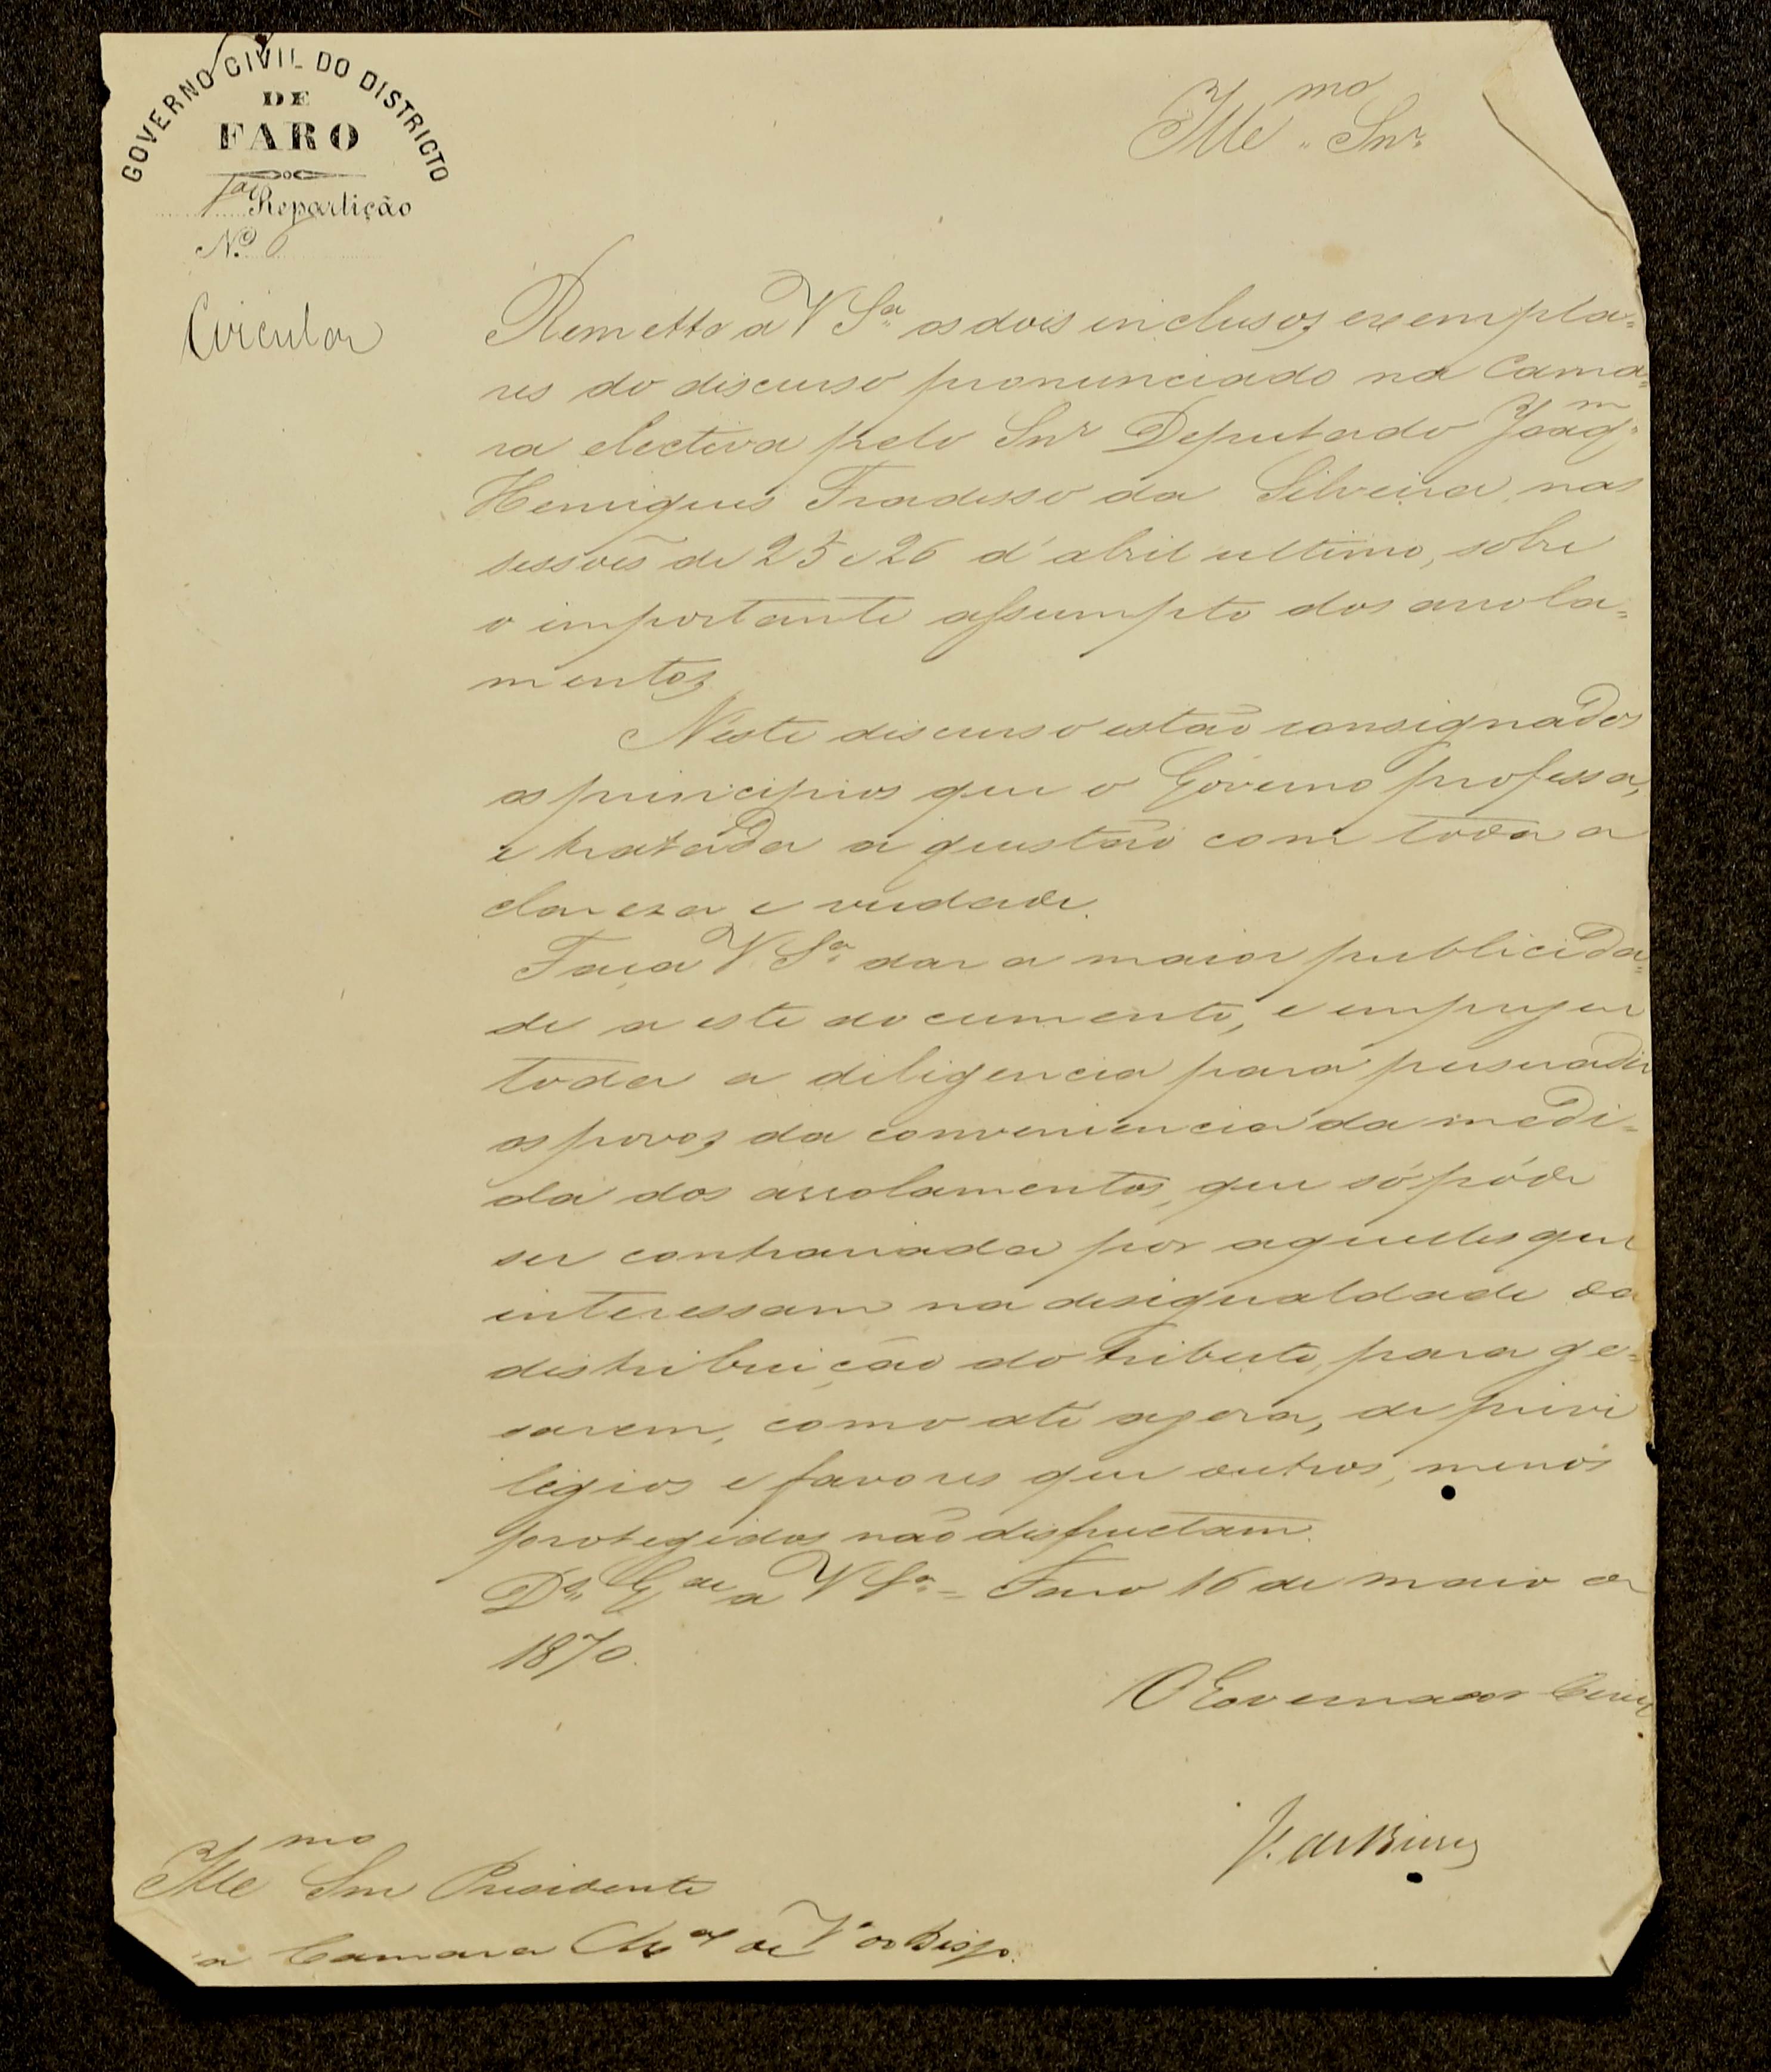 GOVERNO CIVIL DO DISTRICTO
DE
FARO
1ª Repartição
N.º
Circular
Ille.mo Snr.
Remetto a V Sª os dois inclusos exempla=
res do discurso pronunciado na Cama=
ra electiva pelo Snr Deputado Joaq.m
Henriques Fradesso da Silveira nas
sessões de 25 e 26 d'abril ultimo, sobre
o importante assumpto dos arrola=
mentos
Neste discurso estão consignados
os principios que o Governo professa,
e tratada a questão com toda a
clareza e verdade.
Faça V. Sª dar a maior publicida=
de a este documento, e empregue
toda a diligencia para persuadir
os povos da conveniencia da medi=
da dos arrolamentos, que só póde
ser contrariada por aquelles que
interessam na desigualdade da
distribuição do tributo, para go=
sarem, como até agora, de privi
legios e favores que outros, menos
protegidos não disfructam.
Ds. G.de a V Sª = Faro 16 de maio de
1870.
O Governador Civil
Ille mo Snr Presidente
a Camara M.al de V.ª do Bispo.